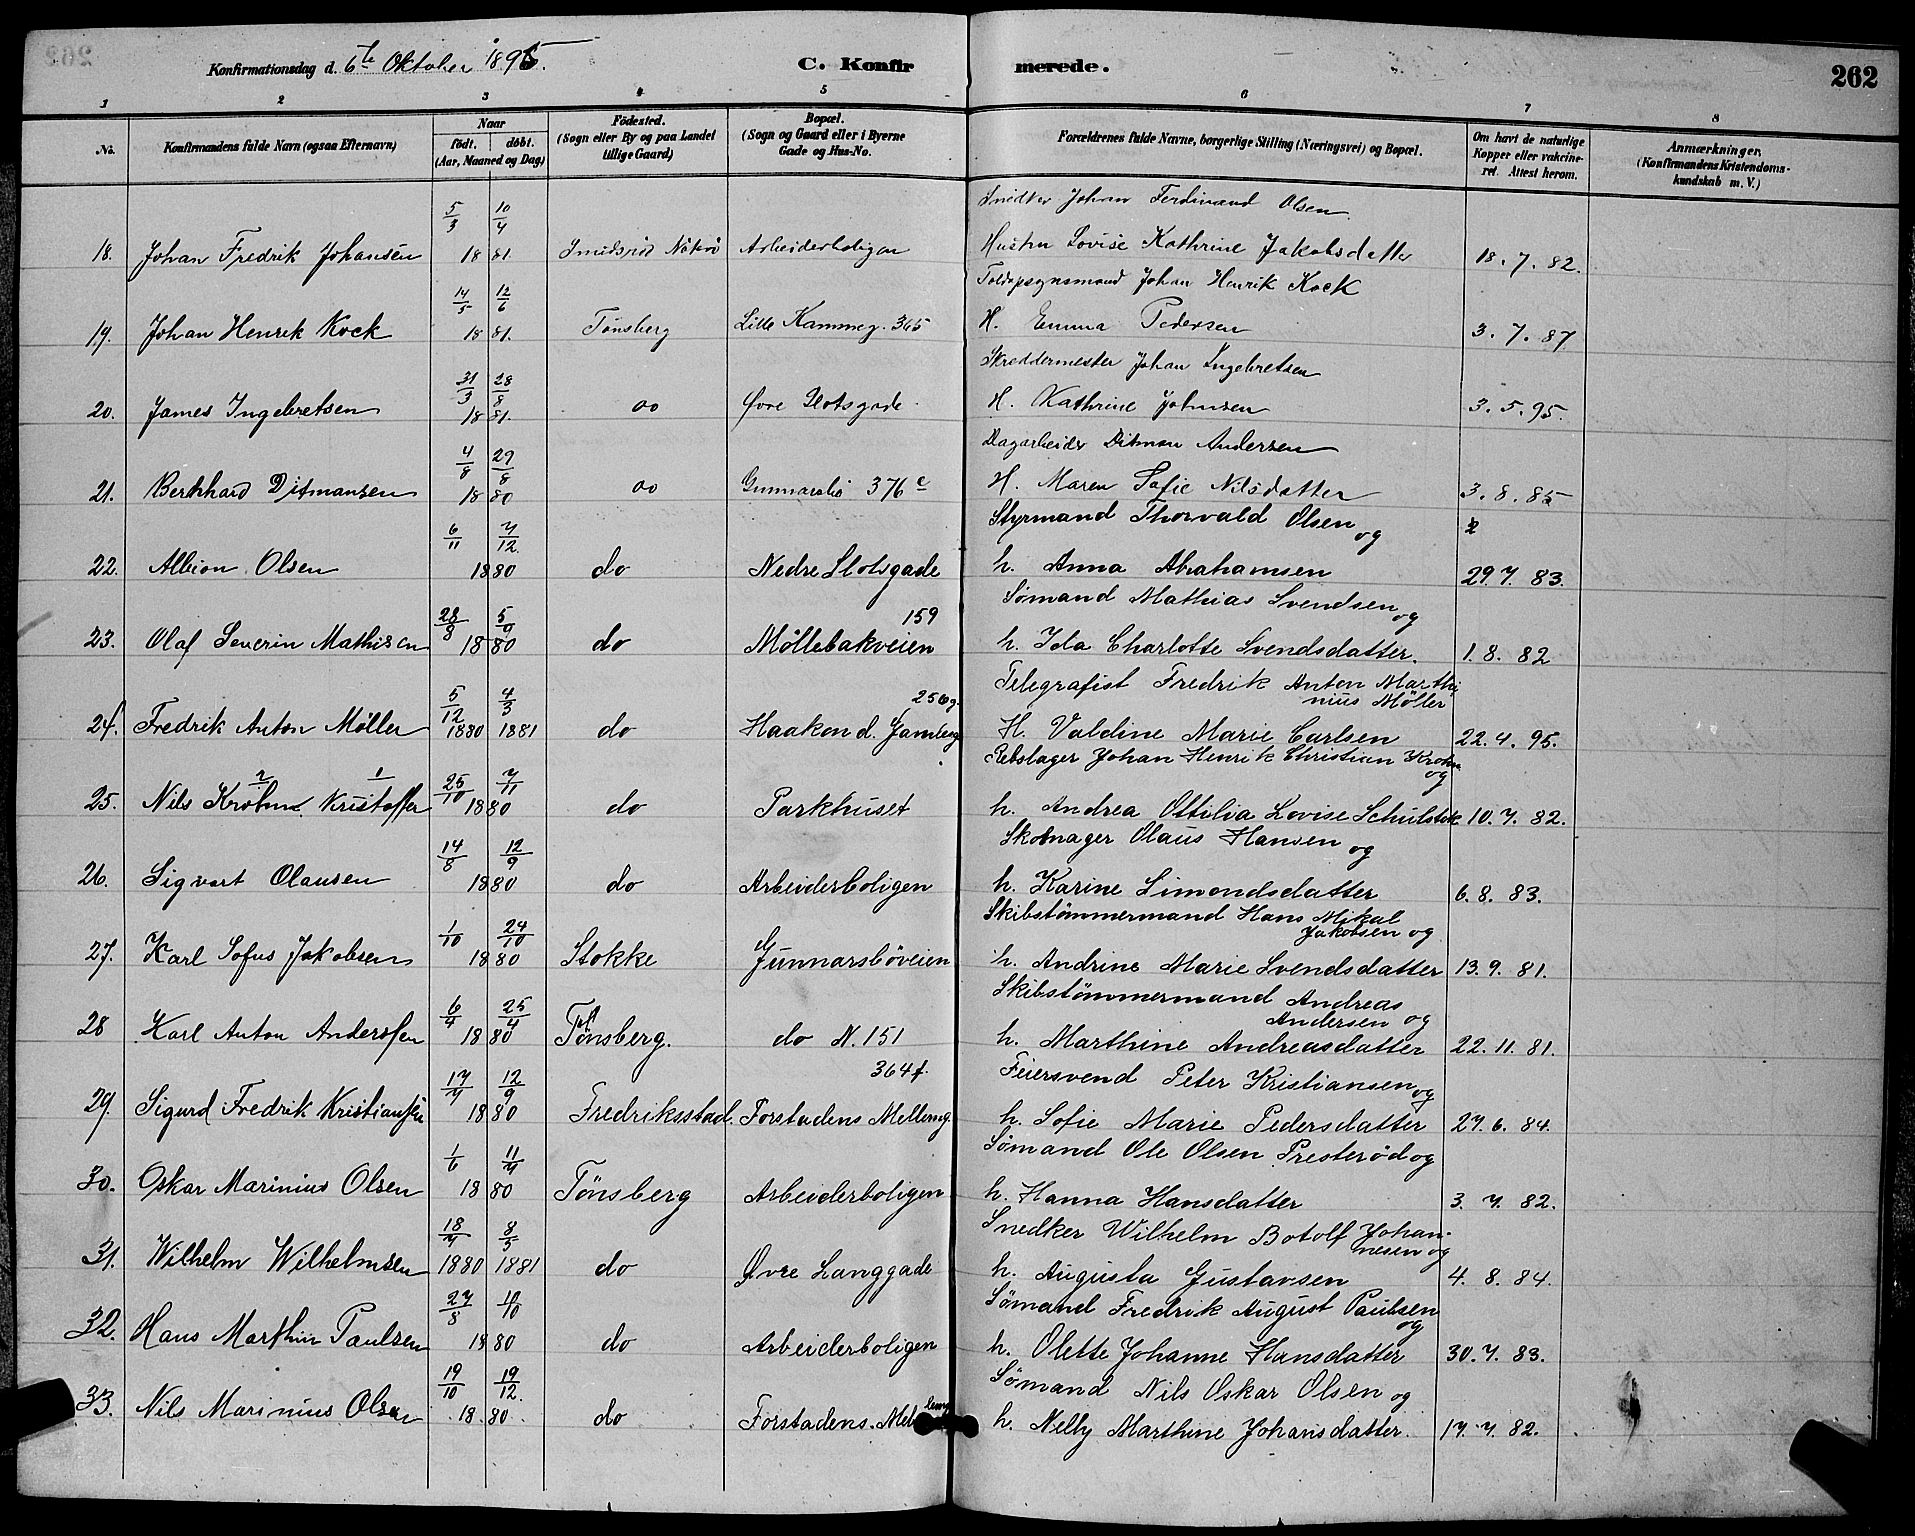 Konfirmationsdag d. 6te Oktober 1895. C. Konfirmerede. 262
1 2 3 4 5 6 7 8
No. Konfirmandens fulde Navn (ogsaa Efternavn) Naar født. døbt. (Aar, Maaned og Dag) Fødested. (Sogn eller By og paa Landet tillige Gaard) Bopæl. (Sogn og Gaard eller i Byerne Gade og Hus-No. Forældrenes fulde Navne, borgerlige Stilling (Næringsvei) og Bopæl. Om havt de naturlige Kopper eller vakcineret. Attest herom. Anmærkninger. (Konfirmandens Kristendomskundskab m. V.)
5/3 10/4 Snedker Johan Ferdinand Olsen
18. Johan Fredrik Johansen 18 81. Nøterø Arbeiderboligen Hustru Lovise Kathrine Jakobsdatter 18. 7. 82.
14/5 12/6 Toldopsynsmand Johan Henrik Kock
19. Johan Henrik Kock 18 81. Tønsberg Lille Kammeg. 365 H. Emma Pedersen 3. 7. 87
31/3 28/8 Skreddermester Johan Ingebretsen
20. James Ingebretsen 18 81. do Øvre Slotsgade H. Kathrine Johnsen 3. 5. 95.
4/8 29/8 Dagarbeider Ditman Andersen
21. Bernhard Ditmansen 18 80 do Gunnarsbø 376 c H. Maren Sofie Nilsdatter 3. 8. 85
6/11 7/12 Styrmand Thorvald Olsen og
22. Albion Olsen 1880 do Nedre Slotsgade h. Anna Abrahamsen 29. 7. 83.
28/8 5/9 159 Sømand Mathias Svendsen og
23. Olaf Severin Mathisen 18 80 do Møllebakveien h. Ida Charlotte Svendsdatter. 1. 8. 82
5/12 4/3 256 g. Telegrafist Fredrik Anton Marthinius Møller
24. Fredrik Anton Møller 1880 1881 do Haakon d. Gamleg H. Valdine Marie Carlsen 22. 4. 95.
2 1 25/10 7/11 Rebslager Johan Henrik Christian Krohn og
25. Nils Krohn Kristoffer 18 80 do Parkhuset h. Andrea Ottilia Lovise Schulstok 10. 7. 82.
14/8 12/9 Skomager Olaus Hansen og
26. Sigvart Olausen 1880 do Arbeiderboligen h. Karine Simondsdatter 6. 8. 83.
1/10 24/10 Skibstømmermand Hans Mikal Jakobsen og
27. Karl Sofus Jakobsen 18 80 Stokke Gunnarsbøveien h. Andrine Marie Svendsdatter 13. 9. 81.
6/4 25/4 Skibstømmermand Andreas Andersen og
28 Karl Anton Anderssen 18 80 Tønsberg. do N. 151 h. Marthine Andreasdatter 22. 11. 81.
17/7 12/9 364 f. Feiersvend Peter Kristiansen og
29. Sigurd Fredrik Kristiansen 18 80 Fredriksstad. Forstadens Mellemg. h. Sofie Marie Pedersdatter 27. 6. 84.
1/6 11/7 Sømand Ole Olsen Presterød og
30. Oskar Marinius Olsen 18 80 Tønsberg Arbeiderboligen h. Hanna Hansdatter 3. 7. 82.
18/7 8/5 Snedker Wilhelm Botolf Johannesen og
31. Wilhelm Wilhelmsen 1880 1881 do Øvre Langgade h. Augusta Gustavsen 4. 8. 84.
27/8 10/10 Sømand Fredrik August Paulsen og
32. Hans Marthin Paulsen 18 80 do Arbeiderboligen h. Olette Johanne Hansdatter 30. 7. 83.
19/10 19/12 Sømand Nils Oskar Olsen og
33. Nils Marinius Olsen 18 80. do Forstadens Mellemg h. Nelly Marthine Johansdatter. 17. 7. 82.